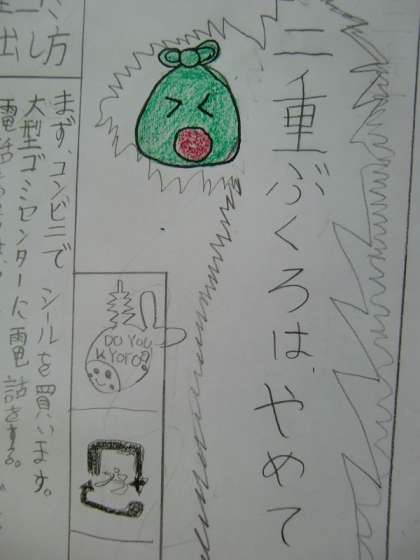 二重ぶくろは、やめて
DO YOU
KYORO?
プラ
方
出し
まず、コンビニで シールを買います。
大型ゴミセンターに電話をする。